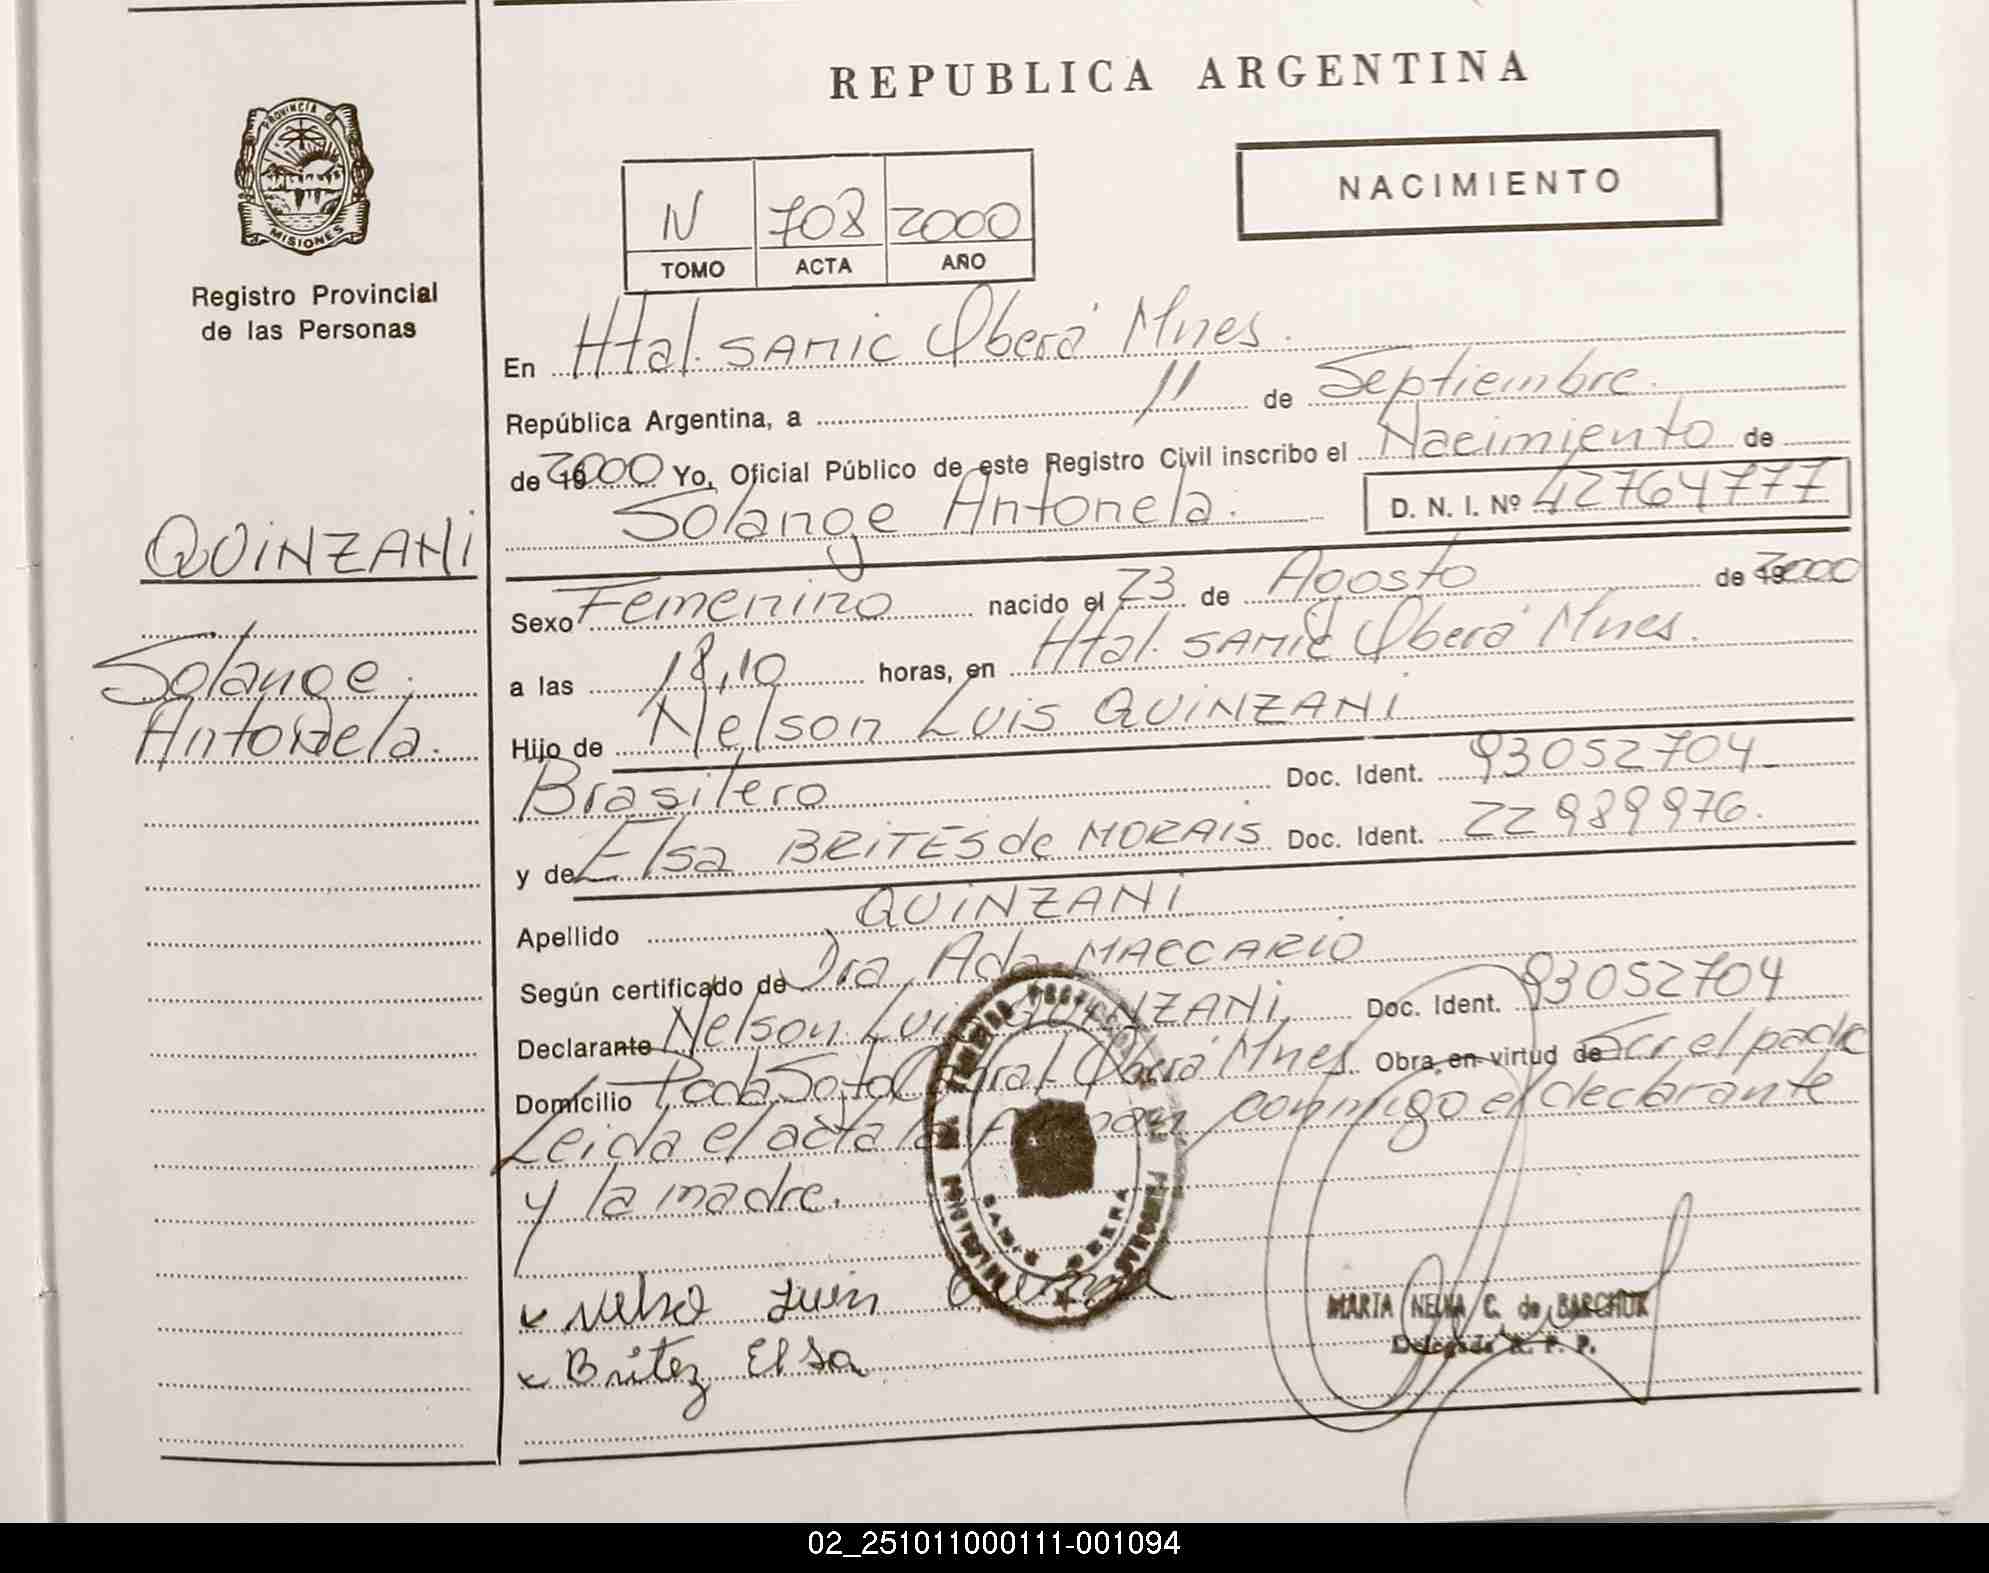 REPUBLICA ARGENTINA
PROVINCIA DE
MISIONES
Registro Provincial
de las Personas
N 708 2000
TOMO ACTA AÑO
NACIMIENTO
En Htal. SAMIC Oberá Mnes.
República Argentina, a 11 de Septiembre.
de 2000 Yo, Oficial Público de este Registro Civil inscribo el Nacimiento de
Solange Antonela. D. N. I. Nº 42764777
QUINZANI
Solange
Antonela.
Sexo Femenino nacido el 23 de Agosto de 2000
a las 18,10 horas, en Htal. SAMIC Oberá Mnes.
Hijo de Nelson Luis QUINZANI
Brasilero Doc. Ident. 93052704
y de Elsa BRITES de MORAIS Doc. Ident. 22989976.
Apellido QUINZANI
Según certificado de Dra Ada MACCARIO
Declarante Nelson Luis QUINZANI. Doc. Ident. 93052704
Domicilio Oberá Mnes. Obra, en virtud de Ser el padre
Leida el acta la firman conmigo el declarante
y la madre.
SAMIC OBERA
Luis
Britez Elsa
MARTA NELVA C. de BARCHUK
Delegada R. P. P.
02_251011000111-001094